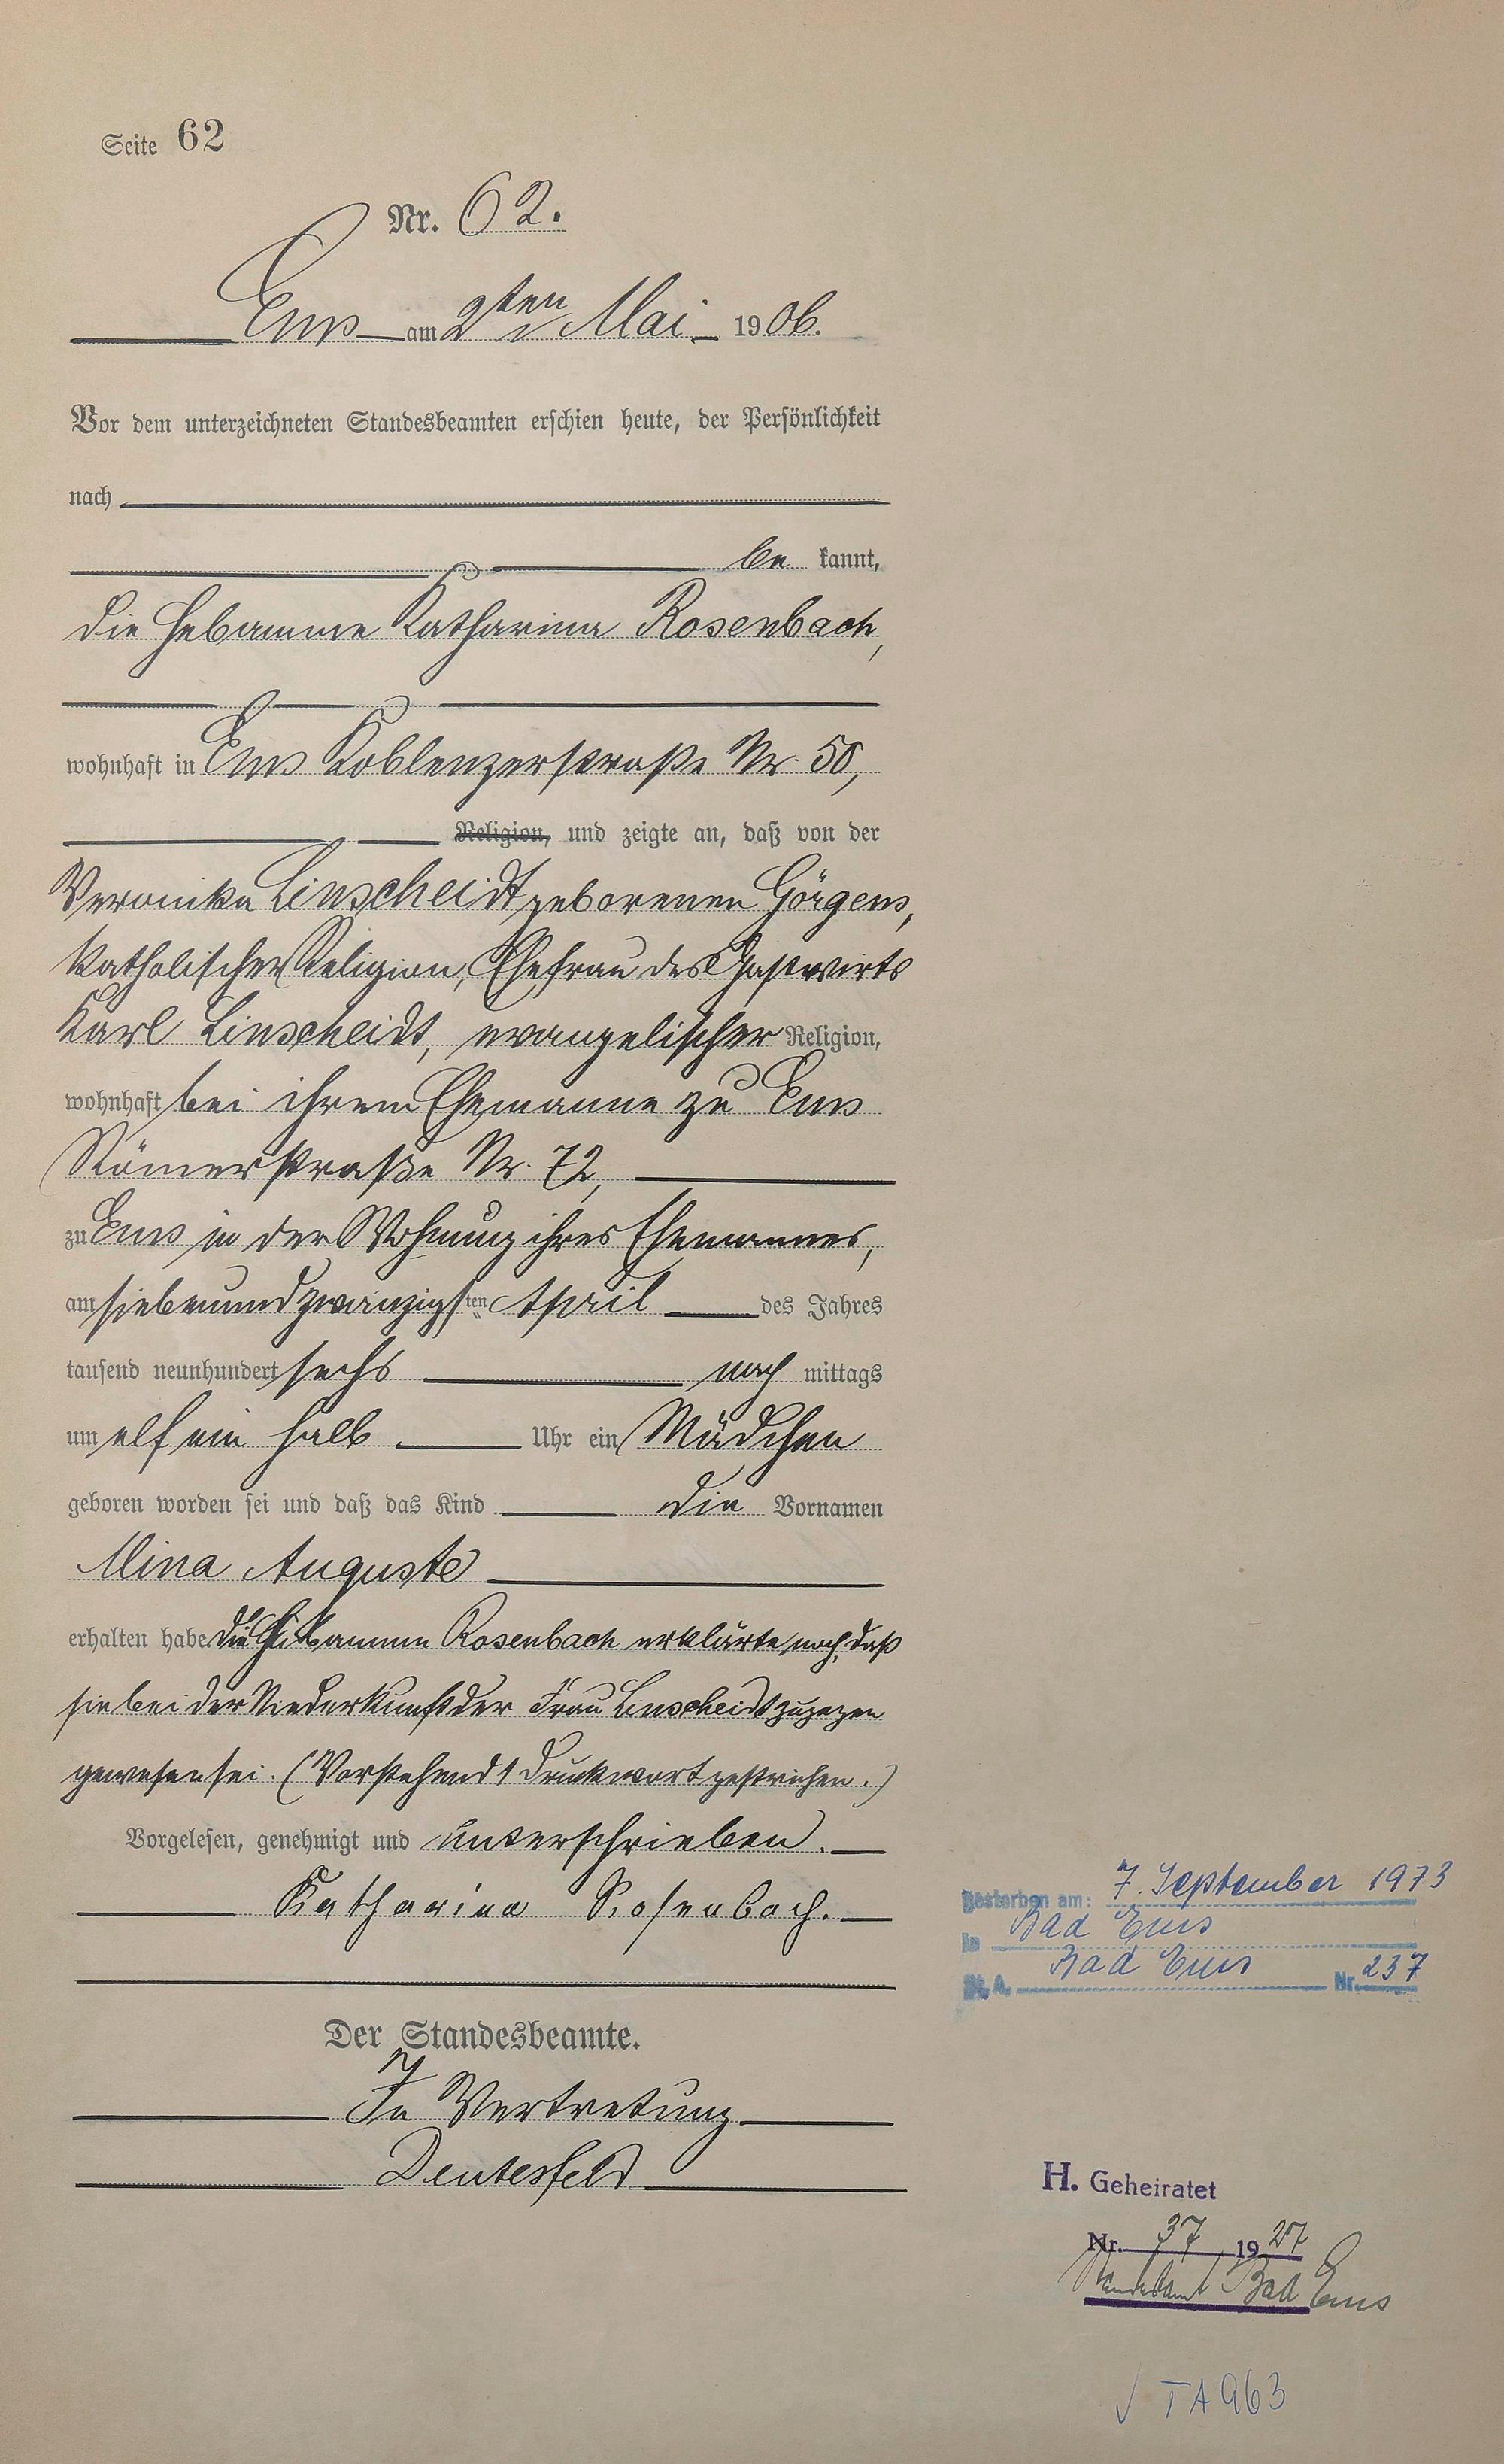 Seite 62
Nr. 62.
Ems am 2ten Mai 1906.
Vor dem unterzeichneten Standesbeamten erschien heute, der Persönlichkeit
nach
be kannt,
die Hebamme Katharina Rosenbach,
wohnhaft in Ems Koblenzerstraße Nr. 50,
Religion, und zeigte an, daß von der
Veronika Linscheidt geborenen Görgens,
katholischer Religion, Ehefrau des Gastwirts
Karl Linscheidt, evangelischer Religion,
wohnhaft bei ihrem Ehemanne zu Ems
Römerstraße Nr. 72,
zu Ems in der Wohnung ihres Ehemannes,
am siebenundzwanzigsten April des Jahres
tausend neunhundert sechs nach mittags
um elf ein halb Uhr ein Mädchen
geboren worden sei und daß das Kind die Vornamen
Mina Auguste
erhalten habe. Die Hebamme Rosenbach erklärte noch, daß
sie bei der Niederkunft der Frau Linscheidt zugegen
gewesen sei. (Vorstehend 1 Druckwort gestrichen.)
Vorgelesen, genehmigt und unterschrieben.
Katharina Rosenbach.
Der Standesbeamte.
In Vertretung
Deutesfeld
Gestorben am: 7. September 1973
in Bad Ems
St. A. Bad Ems Nr. 237
H. Geheiratet
Nr. 37 1927
Standesamt Bad Ems
√ TA 963